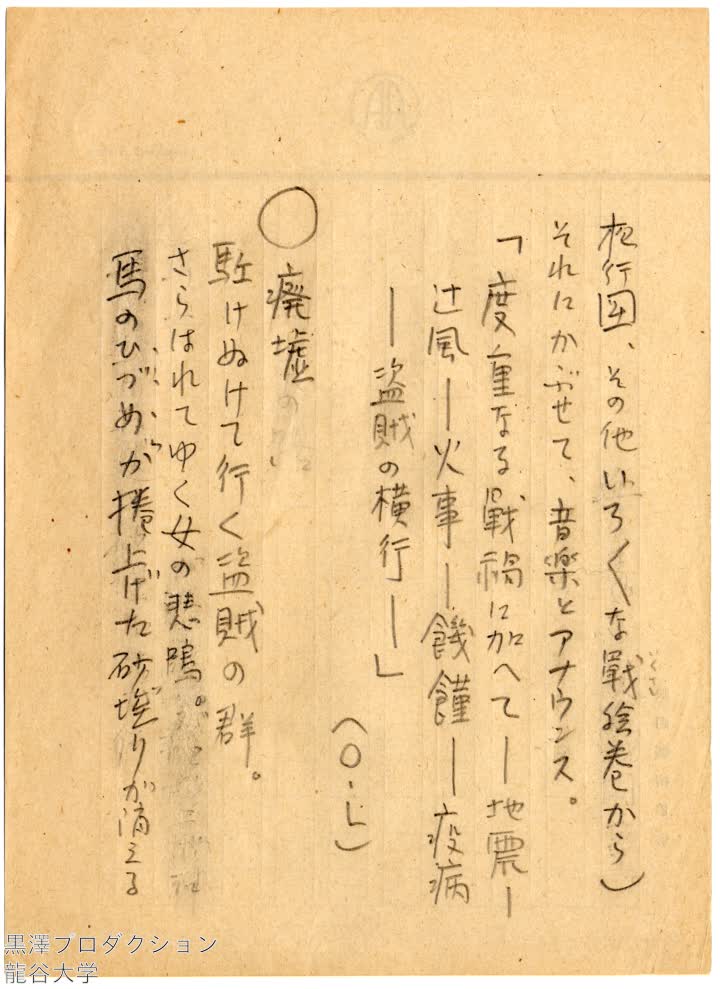 行団、その他いろ〱な戦絵巻から)
いくさ
それにかぶせて、音楽とアナウンス。
「度重なる戦禍に加へて―地震―
辻風―火事―饑饉―疫病
―盗賊の横行―」
(O・L)
○廃墟
駈けぬけて行く盗賊の群。
さらはれてゆく女の悲鳴。
馬のひづめが捲上げた砂埃りが消える
黒澤プロダクション
龍谷大学